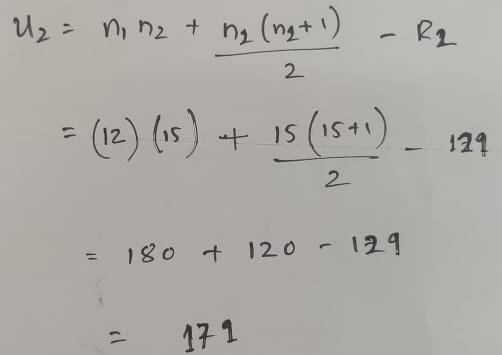 U₂ = n₁ n₂ + n₂ (n₂+1) / 2 - R₂
= (12) (15) + 15 (15+1) / 2 - 129
= 180 + 120 - 129
= 171